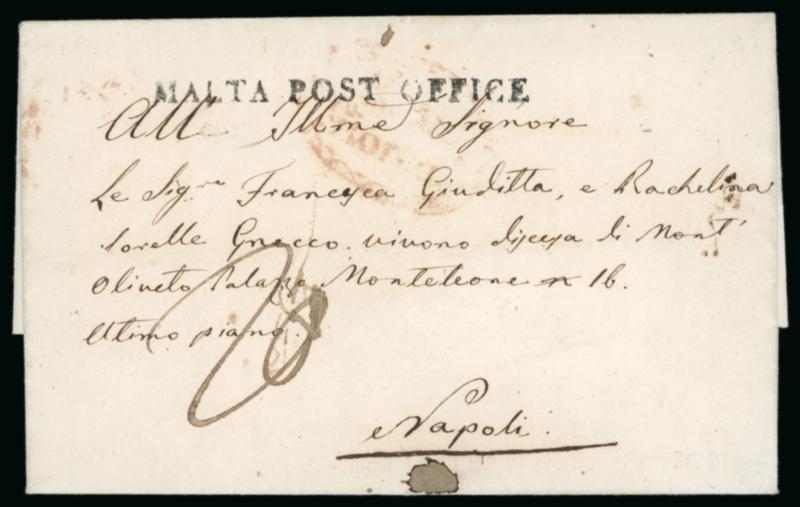 MALTA POST OFFICE
All' Illme Signore
Le Sigre Francesca Giuditta, e Rachelina
Sorelle Gnecco vivono discesa di Mont'
Oliveto Palazzo Monteleone n 16.
Ultimo piano.
Napoli.